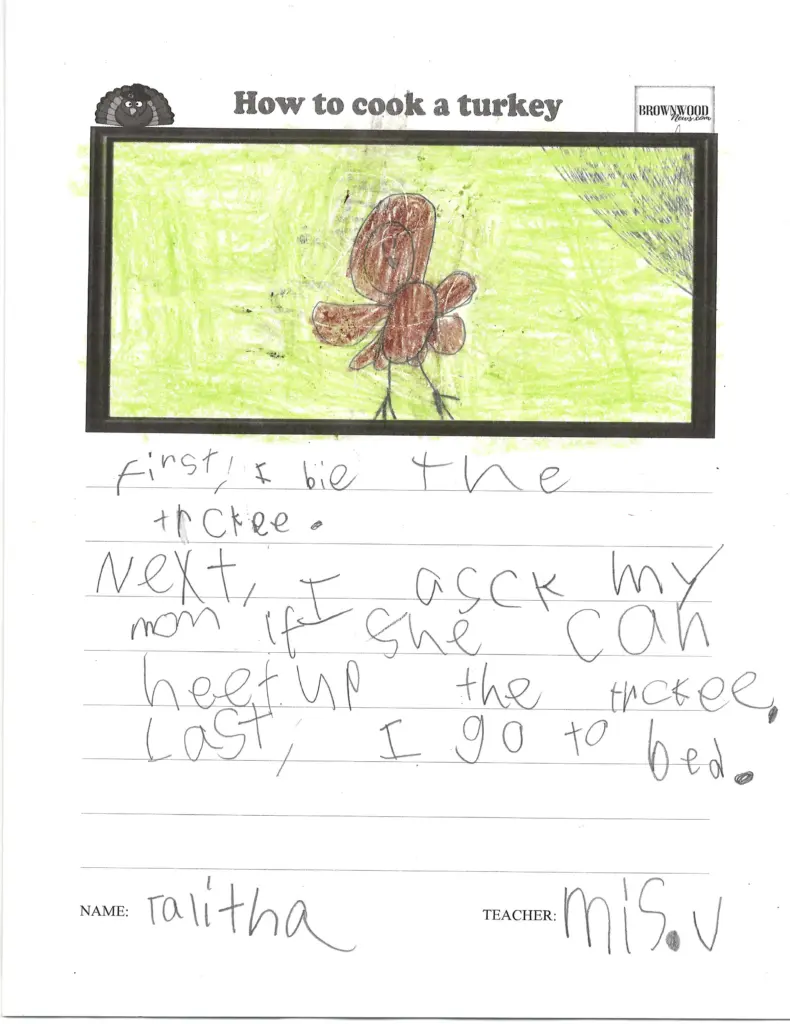 How to cook a turkey
BROWNWOOD
News.com
First, I bie the
trckee.
Next, I asck my
mom if she can
heet up the trckee.
Last, I go to bed.
NAME: Talitha
TEACHER: Mis.V